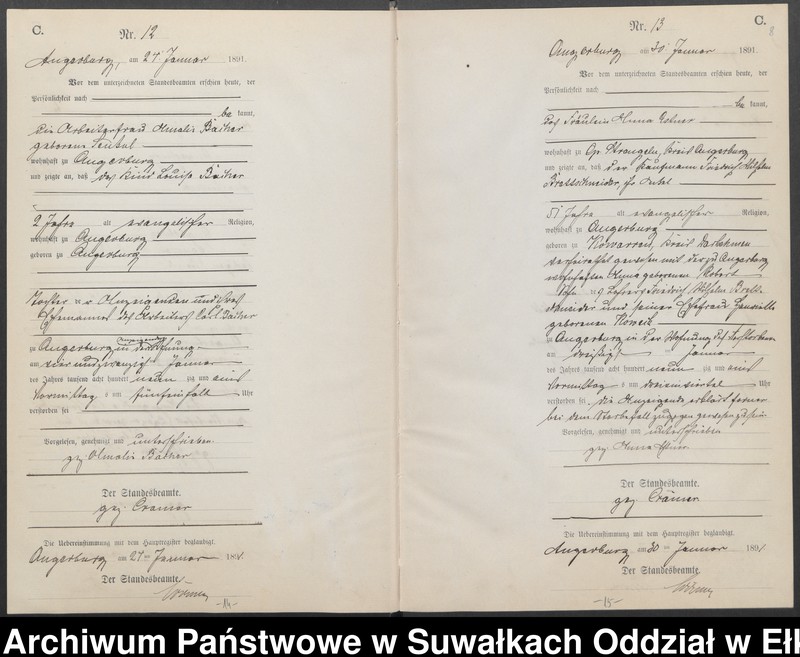 C.
Nr. 12
Angerburg, am 24. Januar 1891.
Vor dem unterzeichneten Standesbeamten erschien heute, der
Persönlichkeit nach
be kannt,
die Arbeiterfrau Amalie Bäcker
geborene
wohnhaft zu Angerburg
und zeigte an, daß das Kind Louise Bäcker
2 Jahre alt evangelischer Religion,
wohnhaft zu Angerburg
geboren zu Angerburg
Tochter der Anzeigenden und ihres
Ehemannes des Arbeiters Carl Bäcker
zu Angerburg in der Wohnung
am vier und zwanzigsten Januar
des Jahres tausend acht hundert neun zig und eins
Vormittag s um fünfeinhalb Uhr
verstorben sei
Vorgelesen, genehmigt und unterschrieben
gez. Amalie Bäcker
Der Standesbeamte.
gez. Crämer
Die Uebereinstimmung mit dem Hauptregister beglaubigt.
Angerburg am 24ten Januar 1891.
Der Standesbeamte.
-14-
C.
8
Nr. 13
Angerburg am 30 Januar 1891.
Vor dem unterzeichneten Standesbeamten erschien heute, der
Persönlichkeit nach
be kannt,
das Fräulein Anna
wohnhaft zu Gr. Strengeln, Kreis Angerburg
und zeigte an, daß der Kaufmann Friedrich Wilhelm
Brettschneider, ihr Onkel
51 Jahre alt evangelischer Religion,
wohnhaft zu Angerburg
geboren zu Kowarren, Kreis Darkehmen
verheirathet gewesen mit der zu Angerburg
wohnhaften Anna geborenen Robert
Sohn des Lehrers Friedrich Wilhelm Brett-
schneider und seiner Ehefrau Henriette
geborenen
zu Angerburg in der Wohnung des Verstorbenen
am dreißigsten Januar
des Jahres tausend acht hundert neun zig und eins
Vormittag s um dreieinviertel Uhr
verstorben sei. Die Anzeigende erklärt ferner
bei dem Sterbefall zugegen gewesen zu sein
Vorgelesen, genehmigt und unterschrieben
gez. Anna
Der Standesbeamte.
gez. Crämer
Die Uebereinstimmung mit dem Hauptregister beglaubigt.
Angerburg am 30ten Januar 1891
Der Standesbeamte.
-15-
Archiwum Państwowe w Suwałkach Oddział w Ełk